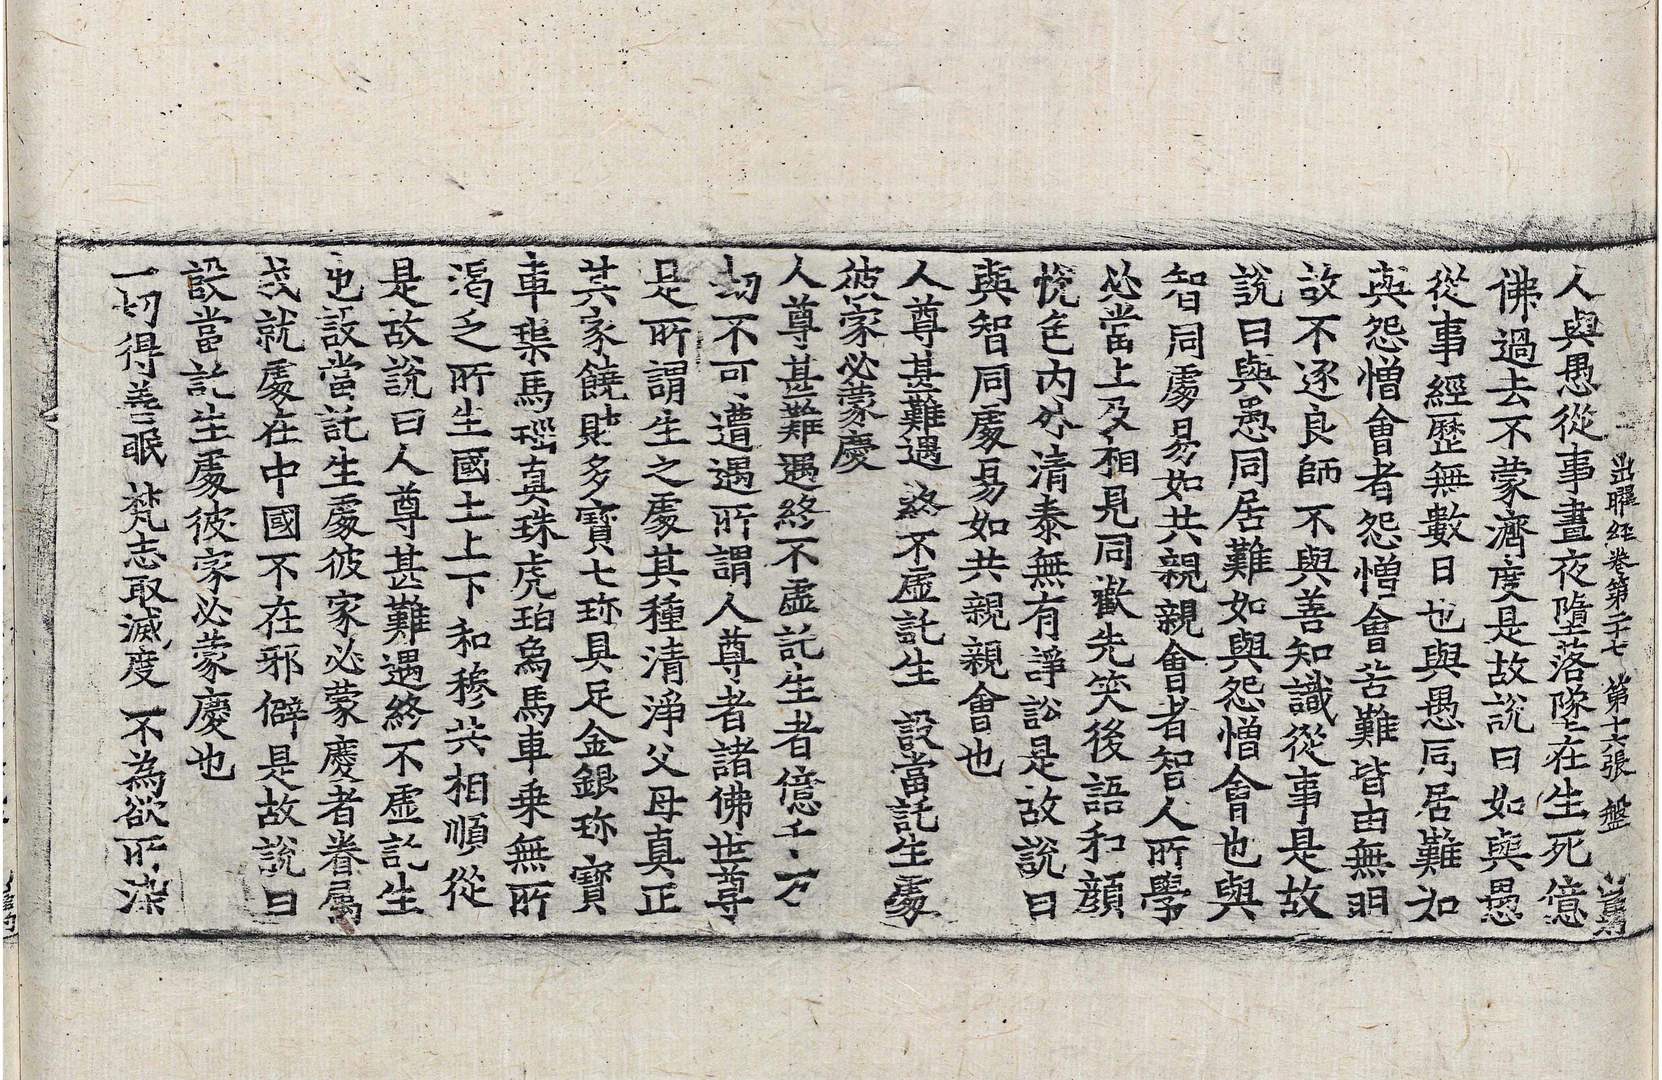 出曜経卷第二十七 第十六張 盤
人與愚從事晝夜墮落墜在生死億
佛過去不蒙濟度是故說曰如與愚
從事經歷無數日也與愚同居難如
與怨憎會者怨憎會苦難皆由無明
故不逐良師不與善知識從事是故
說曰與愚同居難如與怨憎會也與
智同處易如共親親會者智人所學
必當上及相見同歡先笑後語和顔
悅色內外清泰無有諍訟是故說曰
與智同處易如共親親會也
人尊甚難遇 終不虛託生 設當託生處
彼家必蒙慶
人尊甚難遇終不虛託生者億千万
劫不可遭遇所謂人尊者諸佛世尊
是所謂生之處其種清淨父母真正
其家饒財多寶七珎具足金銀珎寶
車𤦲馬瑙真珠虎珀烏馬車乗無所
渴乏所生國土上下和穆共相順從
是故說曰人尊甚難遇終不虛託生
也設當託生處彼家必蒙慶者眷屬
成就處在中國不在邪僻是故說曰
設當託生處彼家必蒙慶也
一切得善眠 梵志取滅度 不為欲所染